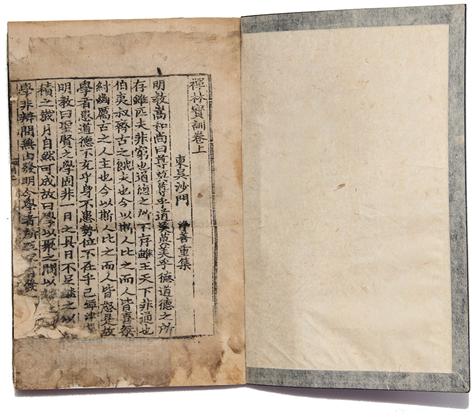 禪林寶訓卷上
東吳沙門 淨善重集
明教嵩和尚曰尊莫尊乎道美莫美乎德道德之所
存雖匹夫非窮也道德之所不存雖王天下非通也
伯夷叔齊古之餓夫也今以斯人比之而人皆喜桀
紂幽厲古之人主也今以斯人比之而人皆怒是故
學者患道德不充乎身不患勢位不在乎己鐔津集
明教曰聖賢之學固非一日之具日不足繼之以
積之歲月自然可成故曰學以聚之問以辨
學非辨問無由發明今學者所